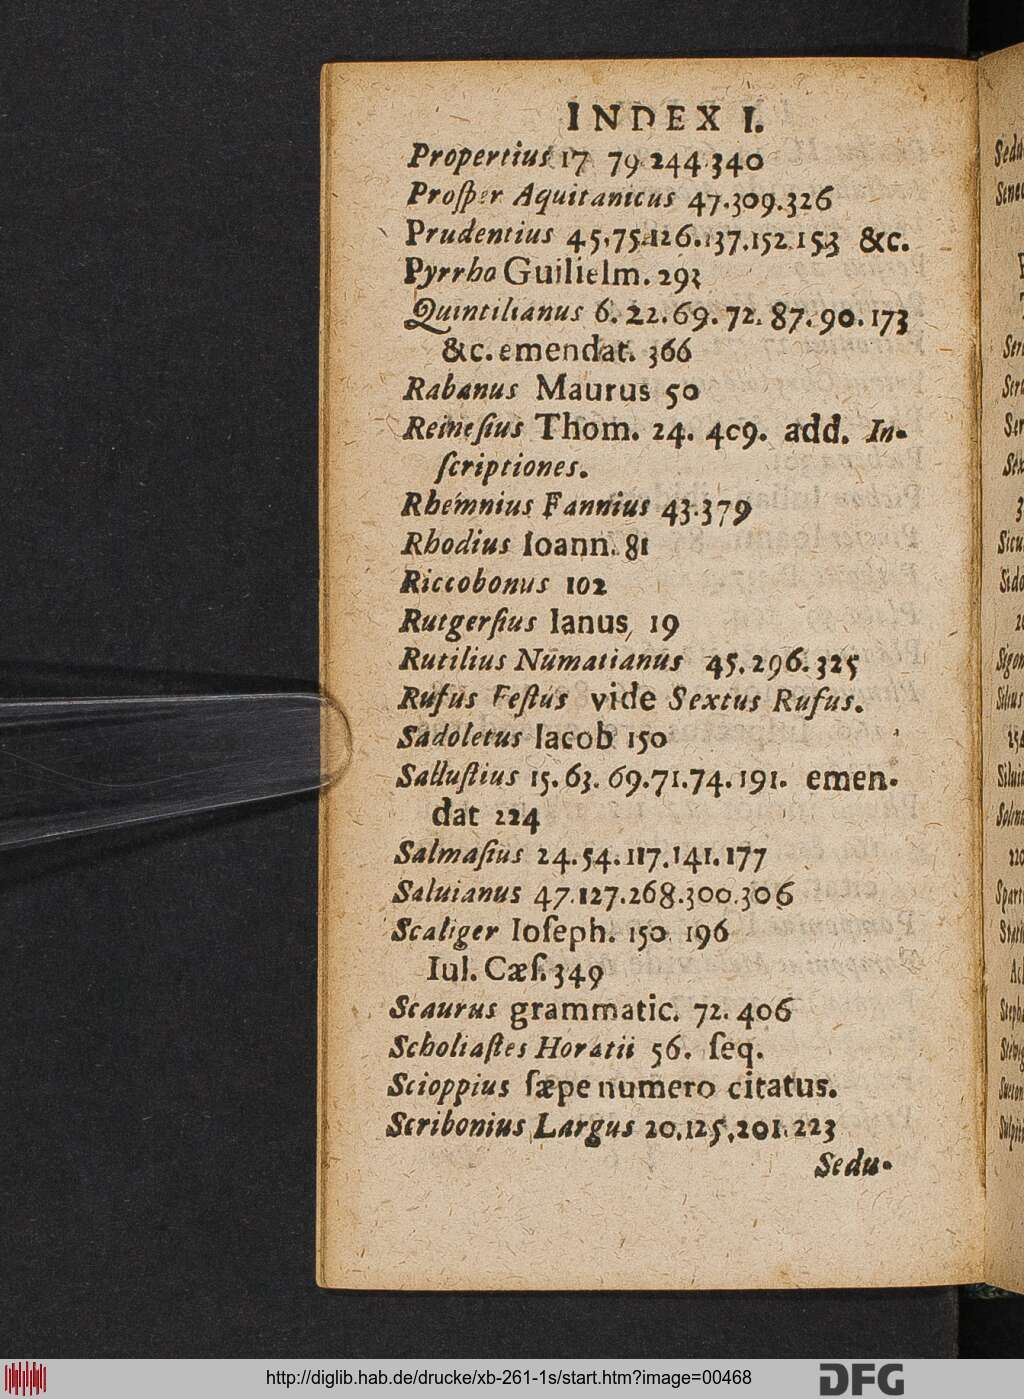 INDEX I.
Propertius 17 79.244.340
Proſper Aquitanicus 47.309.326
Prudentius 45.75.126.137.152.153 &c.
Pyrrho Guilielm. 293
Quintilianus 6. 22. 69. 72. 87. 90. 173
&c. emendat. 366
Rabanus Maurus 50
Reineſius Thom. 24. 409. add. In-
ſcriptiones.
Rhemnius Fannius 43.379
Rhodius Ioann. 81
Riccobonus 102
Rutgerſius Ianus, 19
Rutilius Numatianus 45. 296. 325
Rufus Feſtus vide Sextus Rufus.
Sadoletus Iacob 150
Salluſtius 15. 63. 69.71.74. 191. emen-
dat 224
Salmaſius 24. 54. 117. 141. 177
Saluianus 47.127.268.300.306
Scaliger Ioſeph. 150. 196
Iul. Cæſ. 349
Scaurus grammatic. 72. 406
Scholiaſtes Horatii 56. ſeq.
Scioppius ſæpe numero citatus.
Scribonius Largus 20,125,201.223
Sedu-
http://diglib.hab.de/drucke/xb-261-1s/start.htm?image=00468
DFG